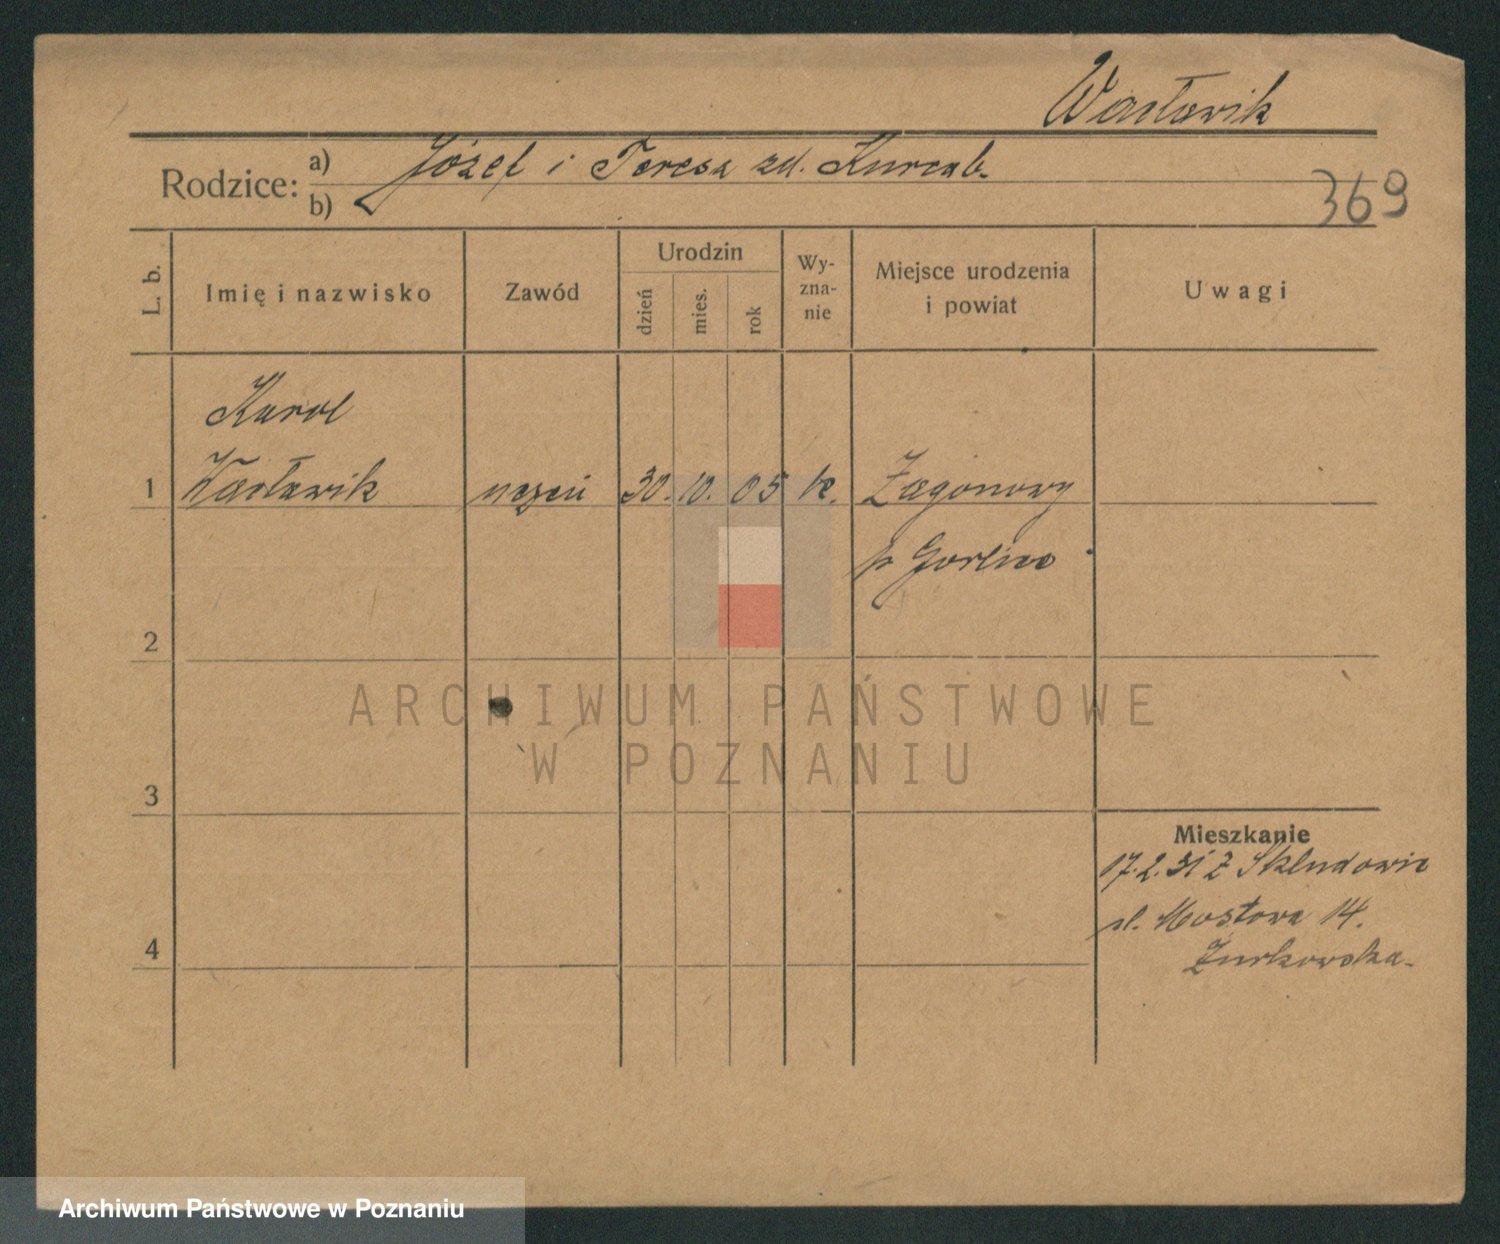 Wacławik
Rodzice: a) Józef i Teresa zd. Kurcab.
b)
369
L. b.
Imię i nazwisko
Zawód
Urodzin
dzień
mies.
rok
Wy-
zna-
nie
Miejsce urodzenia
i powiat
Uwagi
Karol
1 Wacławik uczeń 30. 10. 05 k. Zagorzany
p Gorlice
2
ARCHIWUM PAŃSTWOWE
W POZNANIU
3
Mieszkanie
17.2.31 z
ul. Mostowa 14.
Żurkowska.
4
Archiwum Państwowe w Poznaniu